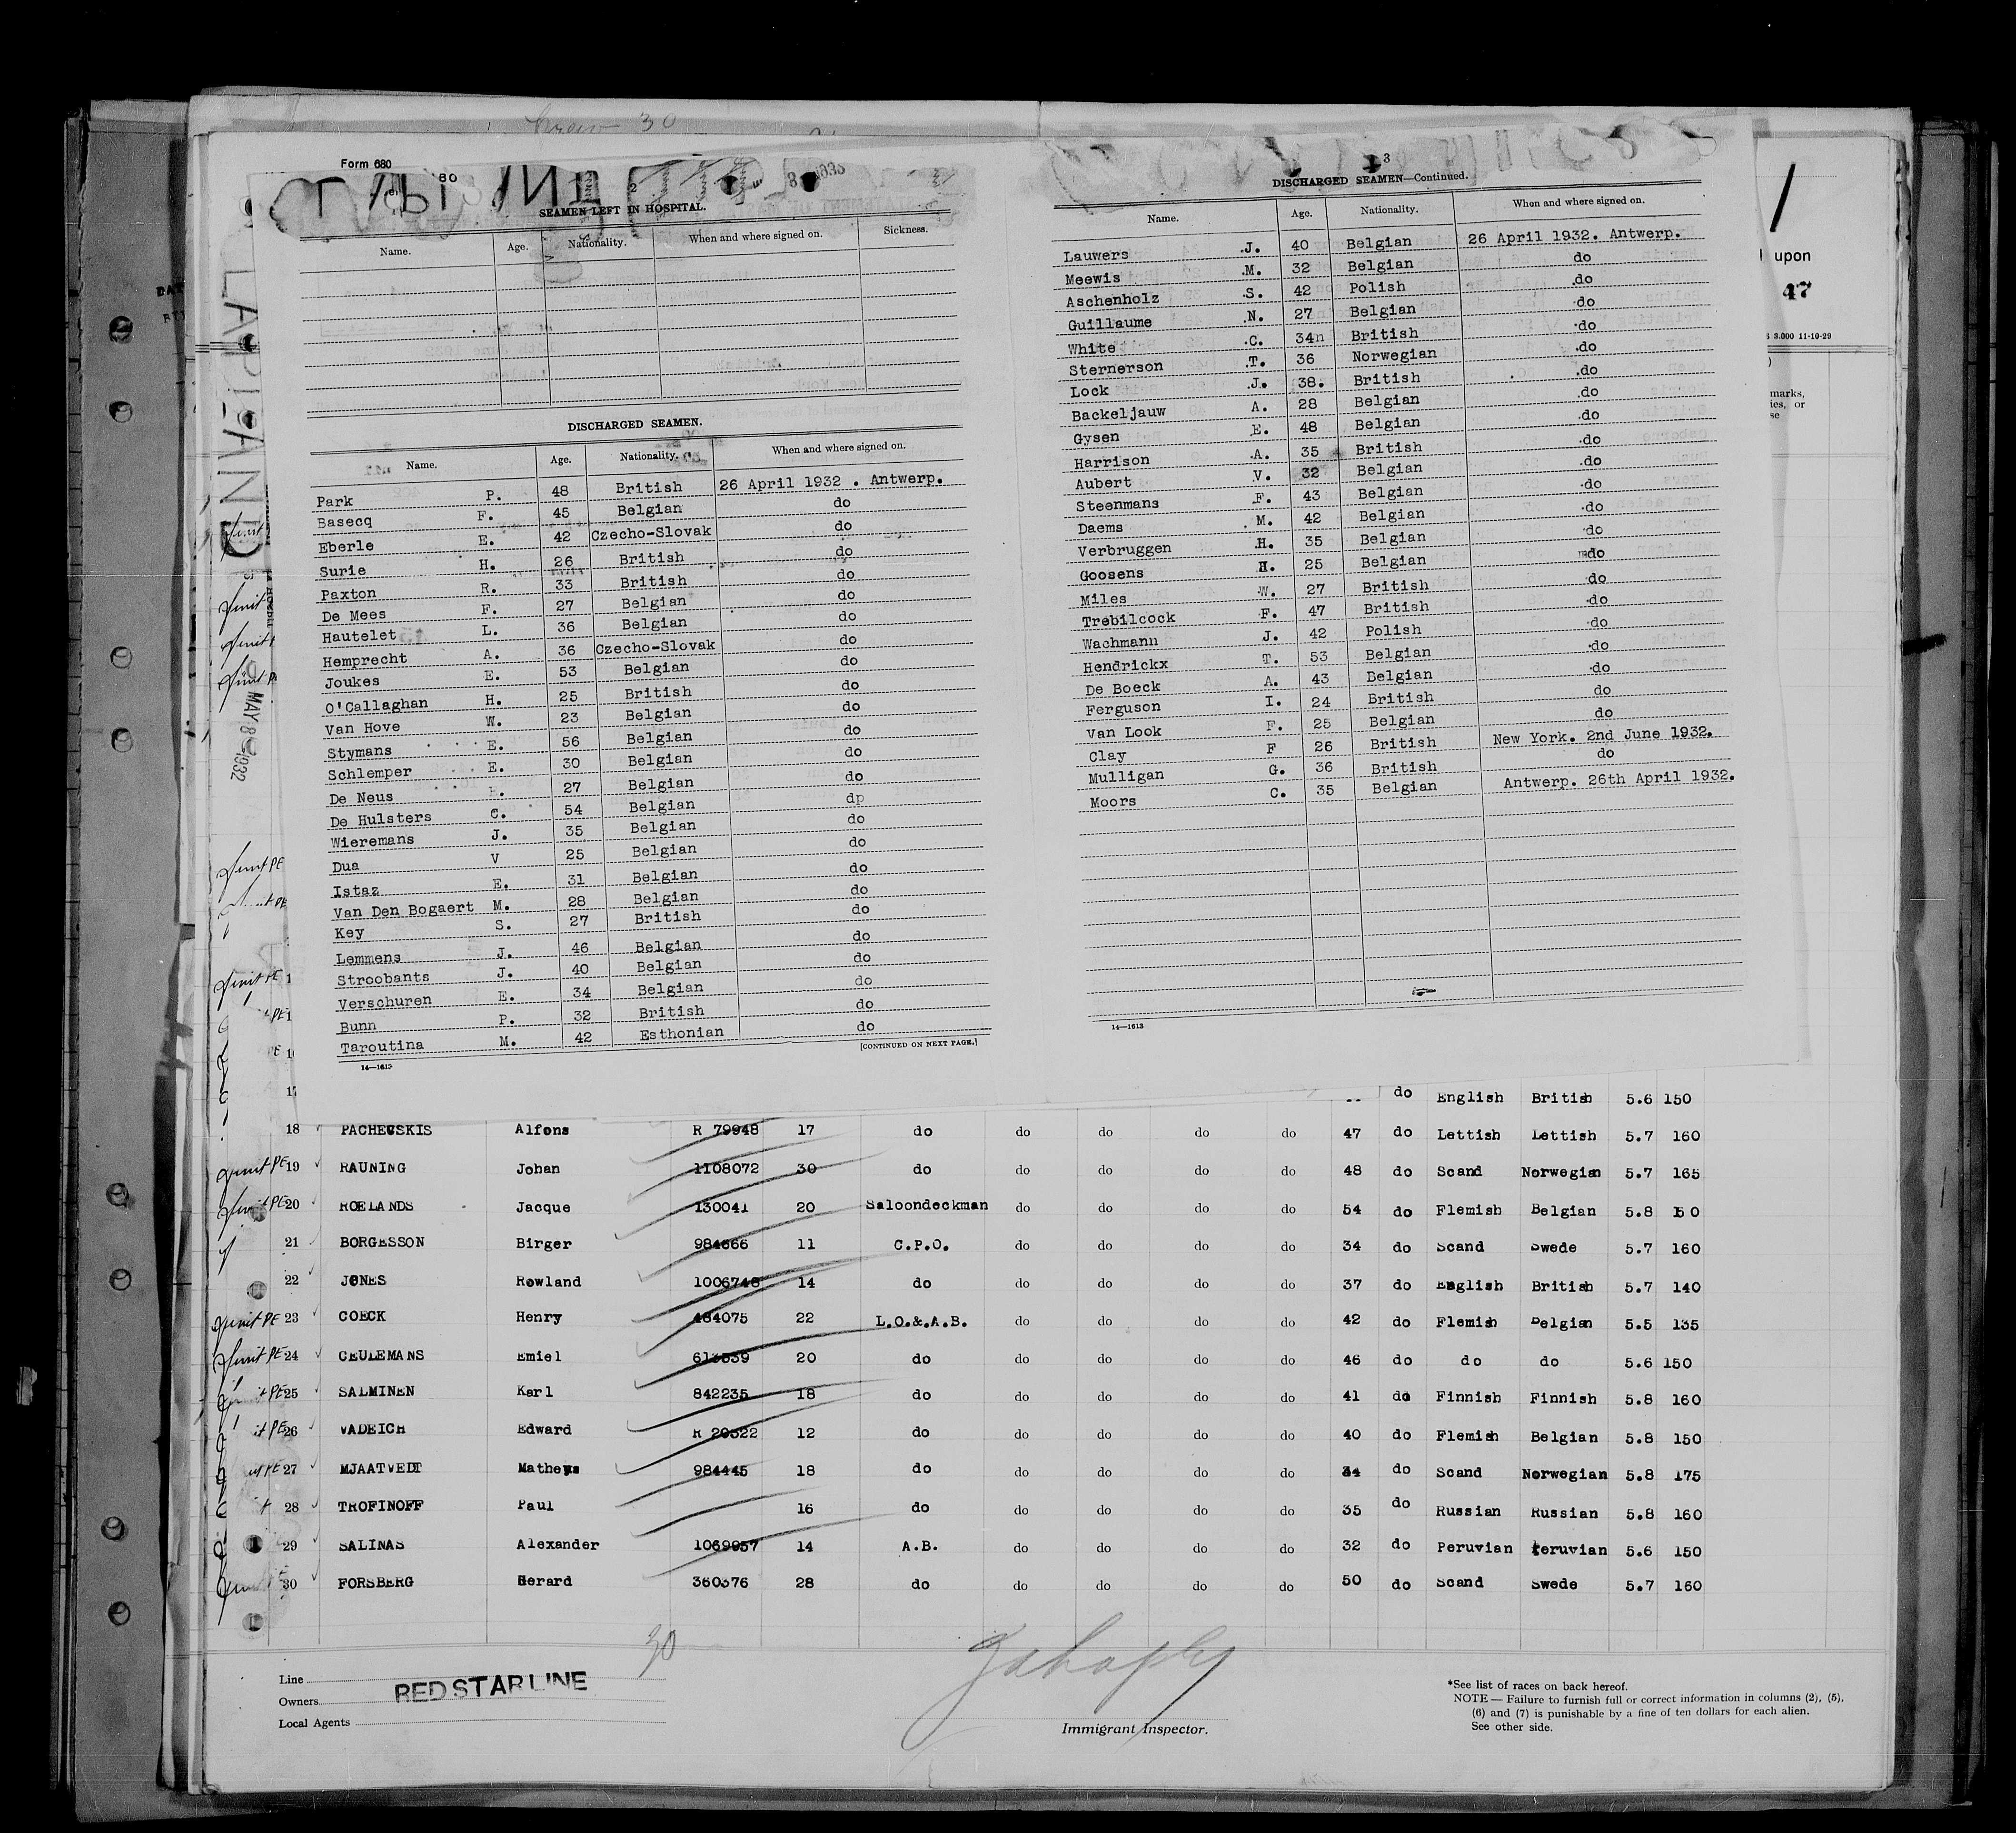 Crew 30
Form 680
2
SEAMEN LEFT IN HOSPITAL.
Name. Age. Nationality. When and where signed on. Sickness.
DISCHARGED SEAMEN.
Name. Age. Nationality. When and where signed on.
Park P. 48 British 26 April 1932 . Antwerp.
Basecq F. 45 Belgian do
Eberle E. 42 Czecho-Slovak do
Surie H. 26 British do
Paxton R. 33 British do
De Mees F. 27 Belgian do
Hautelet L. 36 Belgian do
Hemprecht A. 36 Czecho-Slovak do
Joukes E. 53 Belgian do
O'Callaghan H. 25 British do
Van Hove W. 23 Belgian do
Stymans E. 56 Belgian do
Schlemper E. 30 Belgian do
De Neus 27 Belgian do
De Hulsters C. 54 Belgian dp
Wieremans J. 35 Belgian do
Dua V 25 Belgian do
Istaz E. 31 Belgian do
Van Den Bogaert M. 28 Belgian do
Key S. 27 British do
Lemmens J. 46 Belgian do
Stroobants J. 40 Belgian do
Verschuren E. 34 Belgian do
Bunn P. 32 British do
Taroutina M. 42 Esthonian do
[CONTINUED ON NEXT PAGE.]
14—1613
3
DISCHARGED SEAMEN—Continued.
Name. Age. Nationality. When and where signed on.
Lauwers .J. 40 Belgian 26 April 1932. Antwerp.
Meewis .M. 32 Belgian do
Aschenholz .S. 42 Polish .do
Guillaume .N. 27 Belgian .do
White .C. 34n British .do
Sternerson .T. 36 Norwegian .do
Lock .J. 38. British .do
Backeljauw A. 28 Belgian .do
Gysen .E. 48 Belgian .do
Harrison .A. 35 British .do
Aubert V. 32 Belgian .do
Steenmans .F. 43 Belgian .do
Daems . M. 42 Belgian .do
Verbruggen .H. 35 Belgian .do
Goosens H. 25 Belgian do
Miles .W. 27 British .do
Trebilcock .F. 47 British .do
Wachmann J. 42 Polish .do
Hendrickx T. 53 Belgian .do
De Boeck A. 43 Belgian .do
Ferguson I. 24 British do
Van Look F. 25 Belgian do
Clay F 26 British New York. 2nd June 1932.
Mulligan G. 36 British do
Moors C. 35 Belgian Antwerp. 26th April 1932.
14—1613
LAPLAND
MAY 8 1932
upon
47
3.000 11-10-29
marks,
ies, or
se
do English British 5.6 150
18 PACHEVSKIS Alfons R 79948 17 do do do do do 47 do Lettish Lettish 5.7 160
19 RAUNING Johan 1108072 30 do do do do do 48 do Scand Norwegian 5.7 165
20 ROELANDS Jacque 130041 20 Saloondeckman do do do do 54 do Flemish Belgian 5.8 150
21 BORGESSON Birger 984666 11 C.P.O. do do do do 34 do Scand Swede 5.7 160
22 JONES Rowland 1006748 14 do do do do do 37 do English British 5.7 140
23 COECK Henry 484075 22 L.O.&.A.B. do do do do 42 do Flemish Belgian 5.5 135
24 CEULEMANS Emiel 613539 20 do do do do do 46 do do do 5.6 150
25 SALMINEN Karl 842235 18 do do do do do 41 do Finnish Finnish 5.8 160
26 VADEICH Edward R 20322 12 do do do do do 40 do Flemish Belgian 5.8 150
27 MJAATVEDT Matheus 984445 18 do do do do do 34 do Scand Norwegian 5.8 175
28 TROFINOFF Paul 16 do do do do do 35 do Russian Russian 5.8 160
29 SALINAS Alexander 1069957 14 A.B. do do do do 32 do Peruvian Peruvian 5.6 150
30 FORSBERG Gerard 360376 28 do do do do do 50 do Scand Swede 5.7 160
30
Line
RED STAR LINE
Owners
Local Agents
Immigrant Inspector.
*See list of races on back hereof.
NOTE — Failure to furnish full or correct information in columns (2), (5),
(6) and (7) is punishable by a fine of ten dollars for each alien.
See other side.